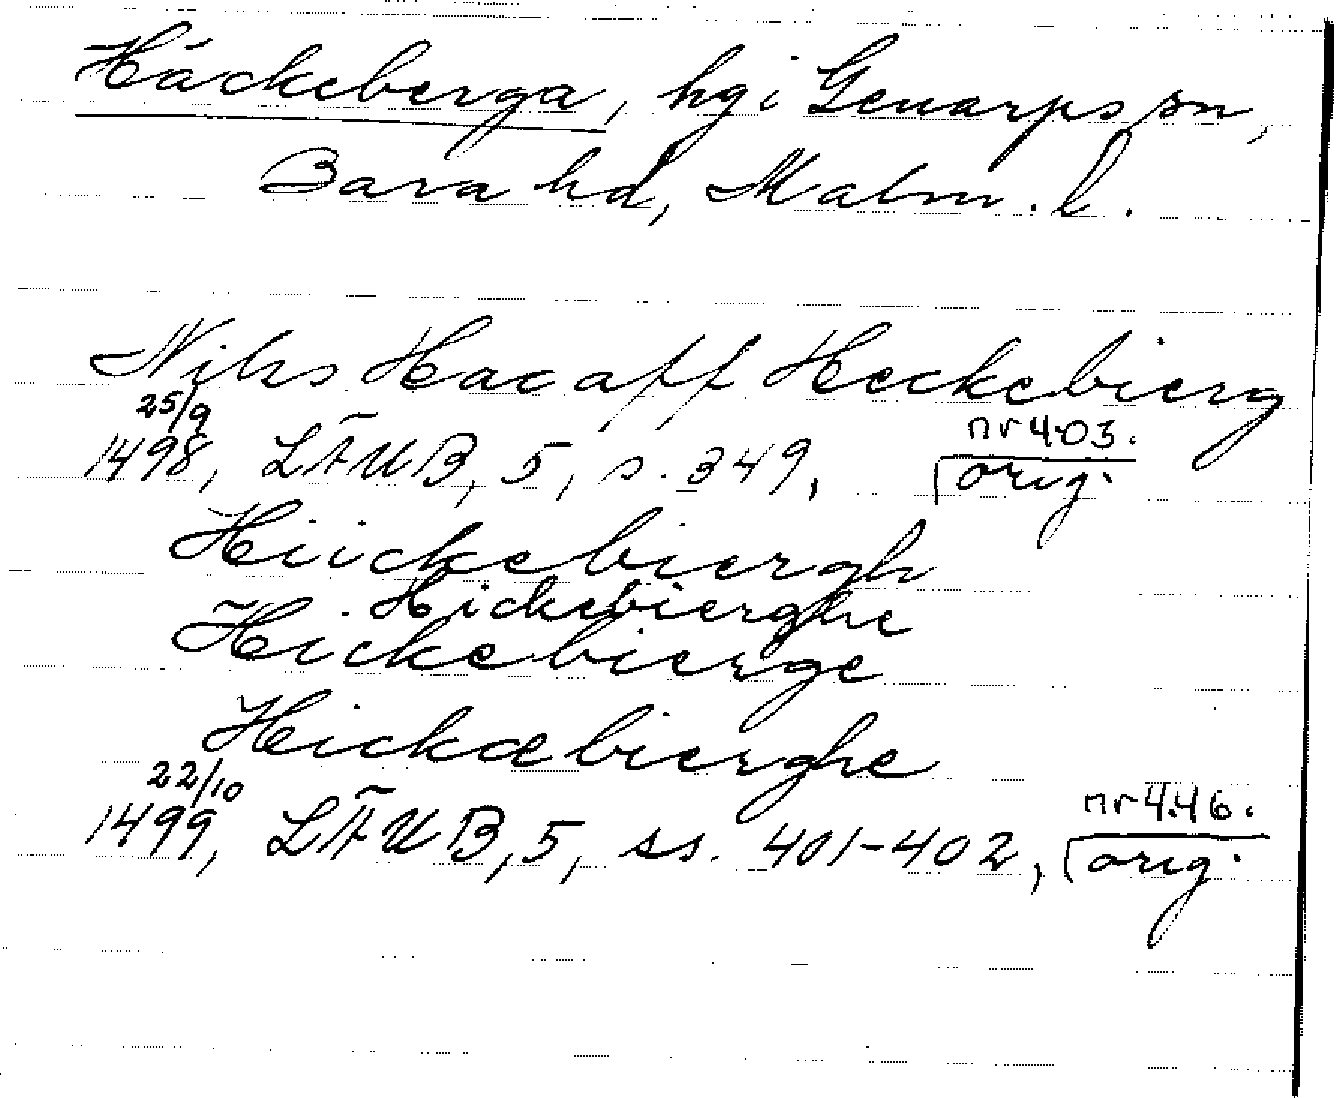 Häckeberga, hg i Genarps sn,
Bara hd, Malm. l.
Nils Hac aff Heckebierg
25/9
1498, LÄUB, 5, s. 349, nr 403. orig.
Hiickebiergh
Hickebierghe
Heickebierge
Heickæbierghe
22/10
1499, LÄUB, 5, ss. 401-402, nr 446. orig.